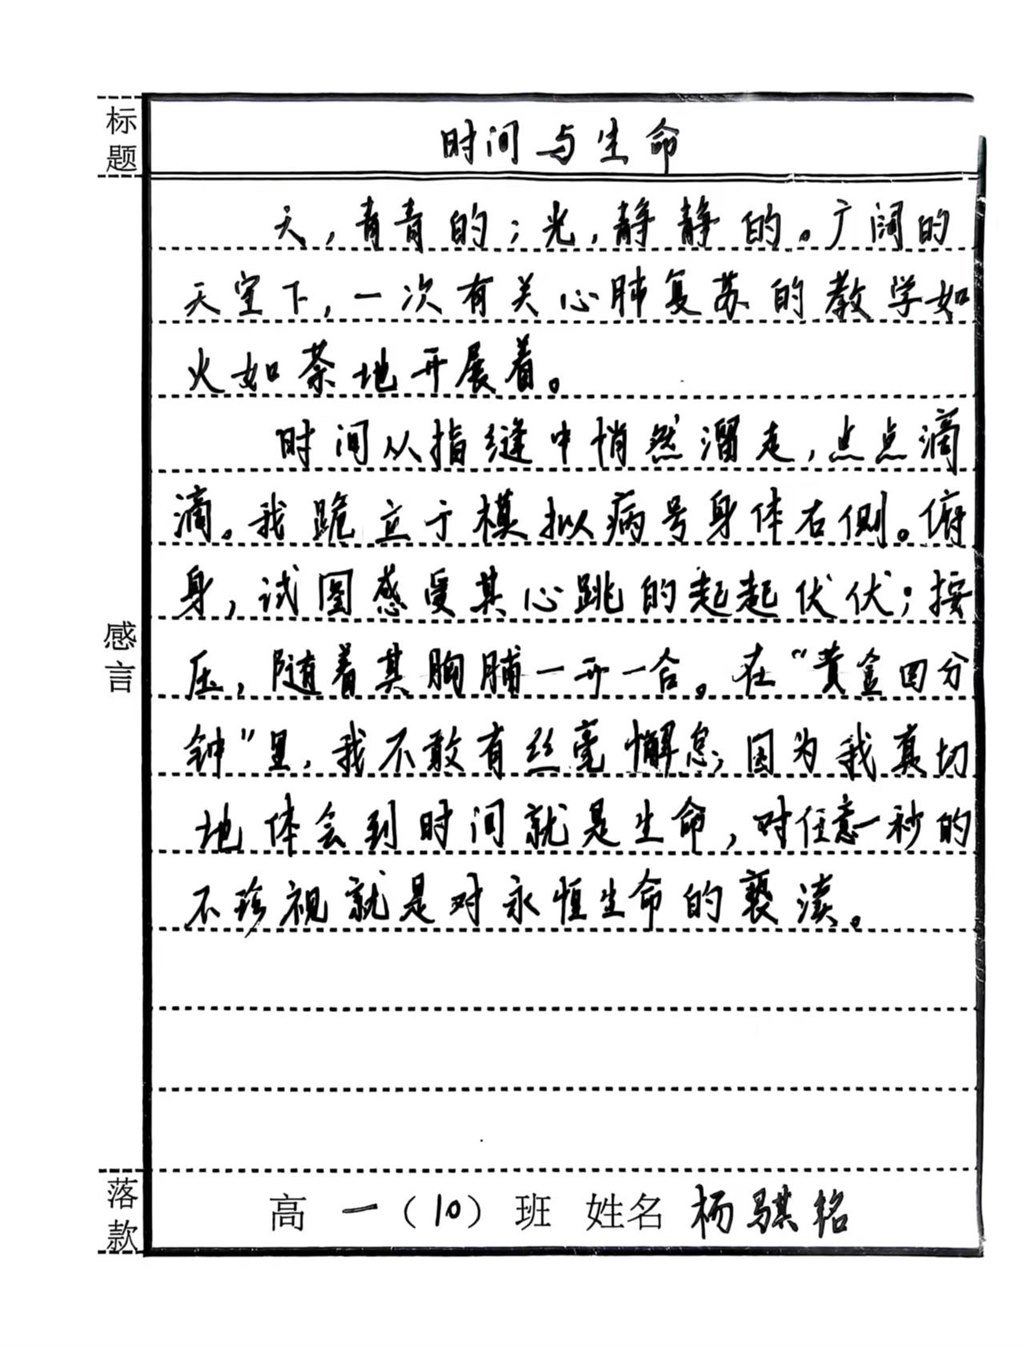 标题
时间与生命
天，青青的；光，静静的。广阔的
天空下，一次有关心肺复苏的教学如
火如荼地开展着。
时间从指缝中悄然溜走，点点滴
滴。我跪立于模拟病号身体右侧。俯
身，试图感受其心跳的起起伏伏；按
压，随着其胸脯一开一合。在“黄金四分
钟”里，我不敢有丝毫懈怠，因为我真切
地体会到时间就是生命，对任意一秒的
不珍视就是对永恒生命的亵渎。
感言
落款
高一（10）班 姓名 杨骐铭